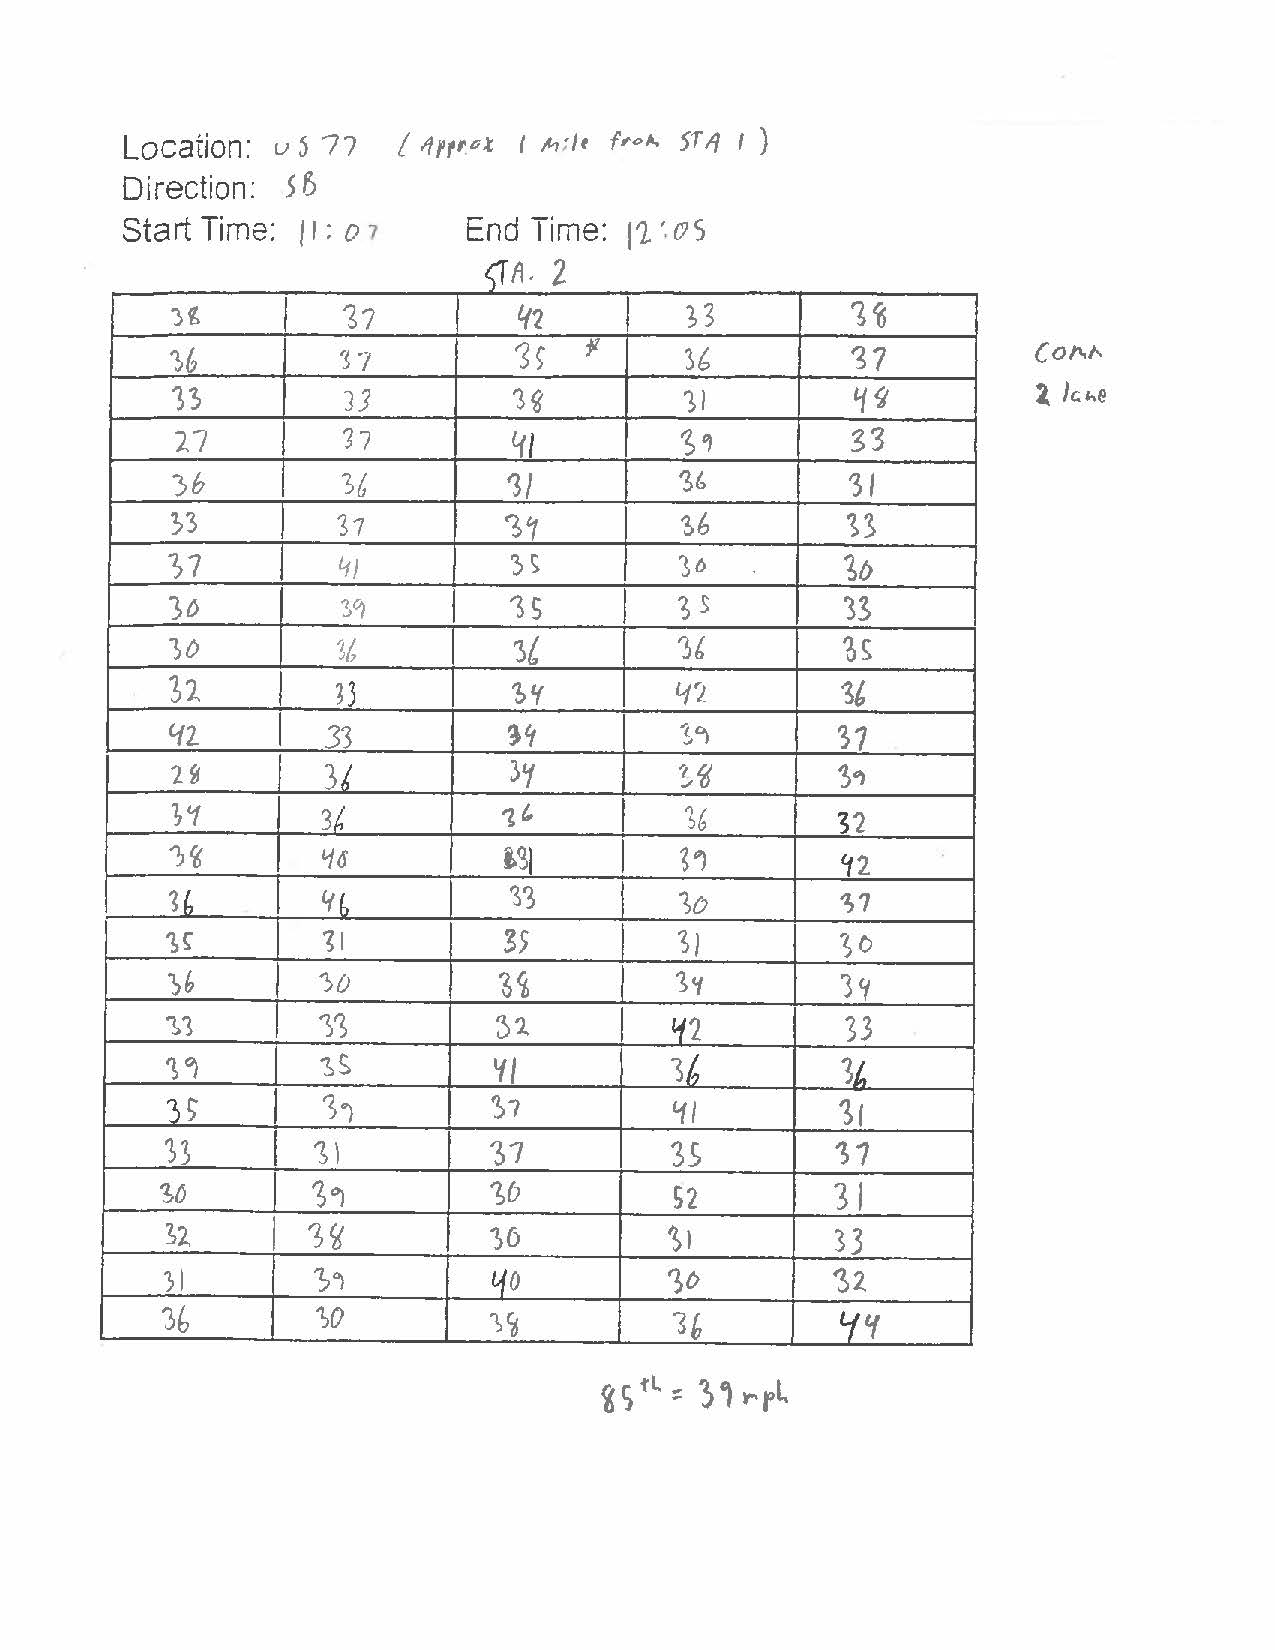 Location: US 77 ( Approx 1 mile from STA 1 )
Direction: SB
Start Time: 11:07 End Time: 12:05
STA. 2
38 37 42 33 38
36 37 35 * 36 37 Comm
33 33 38 31 48 2 lane
27 37 41 39 33
36 36 31 36 31
33 37 34 36 33
37 41 35 30 30
30 39 35 35 33
30 36 36 36 35
32 33 34 42 36
42 33 34 39 37
28 36 34 38 39
34 36 36 36 32
38 40 31 39 42
36 46 33 30 37
35 31 35 31 30
36 30 38 34 34
33 33 32 42 33
39 35 41 36 36
35 39 37 41 31
33 31 37 35 37
30 39 30 52 31
32 38 30 31 33
31 39 40 30 32
36 30 38 36 44
85th = 39 mph